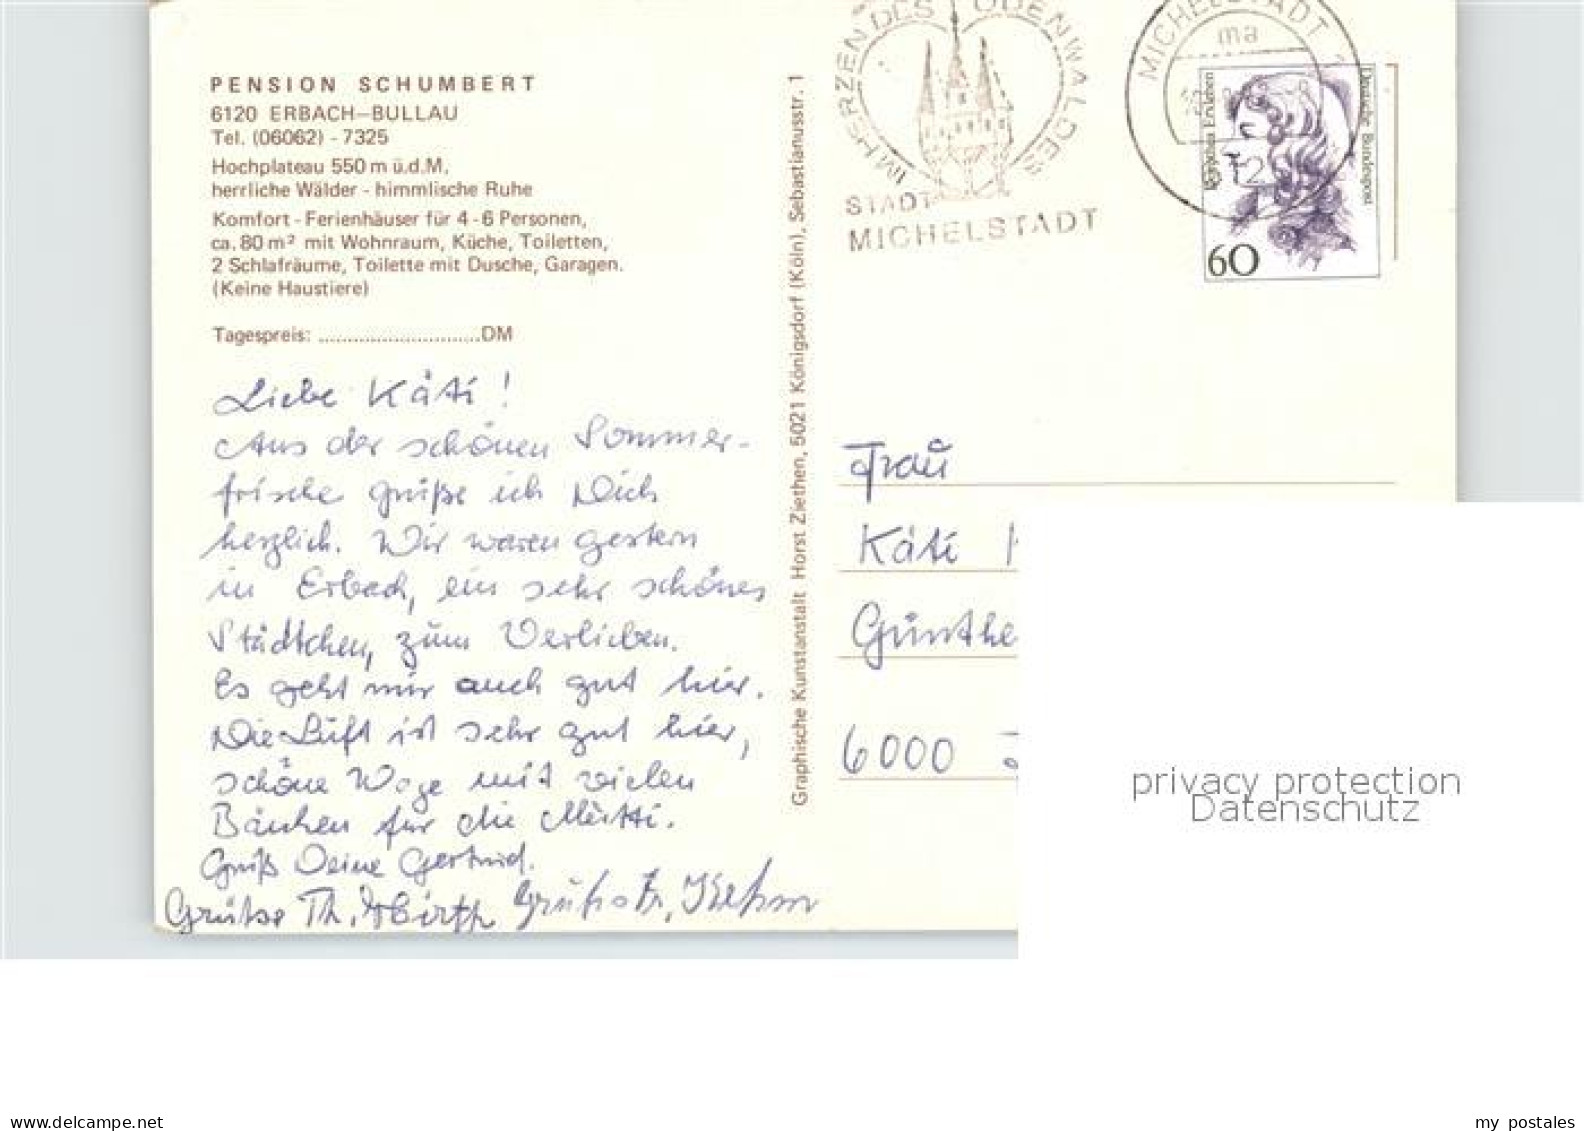 PENSION SCHUMBERT
6120 ERBACH-BULLAU
Tel. (06062) - 7325
Hochplateau 550 m ü.d.M.
herrliche Wälder - himmlische Ruhe
Komfort - Ferienhäuser für 4 - 6 Personen,
ca. 80 m² mit Wohnraum, Küche, Toiletten,
2 Schlafräume, Toilette mit Dusche, Garagen.
(Keine Haustiere)
Tagespreis: ................................DM
Liebe Käti!
Aus der schönen Sommer-
frische grüße ich Dich
herzlich. Wir waren gestern
in Erbach, ein sehr schönes
Städtchen, zum Verlieben.
Es geht mir auch gut hier.
Die Luft ist sehr gut hier,
schöne Wege mit vielen
Bänken für die Mutti.
Gruß Deine Gertrud.
Grüße Th.
Graphische Kunstanstalt Horst Ziethen, 5021 Königsdorf (Köln), Sebastianusstr. 1
IM HERZEN DES ODENWALDES
STADT
MICHELSTADT
MICHELSTADT 1
ma
Dorothea Erxleben
Deutsche Bundespost
60
Frau
Käti
Günthe
6000
privacy protection
Datenschutz
www.delcampe.net
my postales